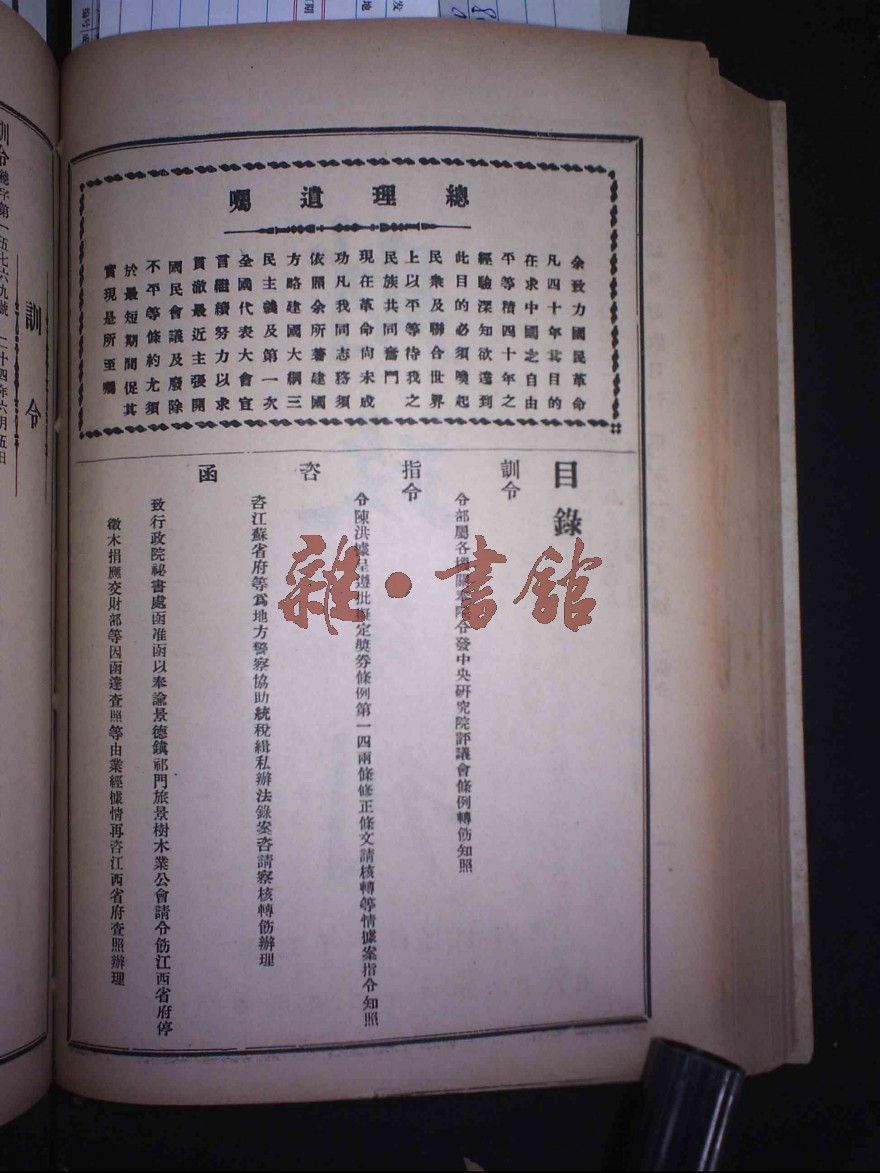 總理遺囑
余致力國民革命
凡四十年其目的
在求中國之自由
平等積四十年之
經驗深知欲達到
此目的必須喚起
民衆及聯合世界
上以平等待我之
民族共同奮鬥
現在革命尙未成
功凡我同志務須
依照余所著建國
方略建國大綱三
民主義及第一次
全國代表大會宣
言繼續努力以求
貫澈最近主張開
國民會議及廢除
不平等條約尤須
於最短期間促其
實現是所至囑
目錄
訓令
令部屬各機關奉院令發中央硏究院評議會條例轉飭知照
指令
令陳洪據呈遵批擬定獎券條例第一四兩條修正條文請核轉等情據案指令知照
咨
咨江蘇省府等爲地方警察協助統稅緝私辦法錄案咨請察核轉飭辦理
函
致行政院祕書處函准函以奉諭景德鎭祁門旅景樹木業公會請令飭江西省府停
徵木捐應交財部等因函達查照等由業經據情再咨江西省府查照辦理
訓令
訓令總字第一五七六九號 二十四年六月五日
雜·書館